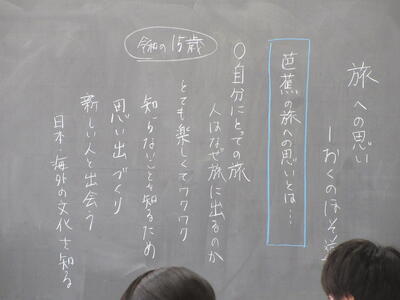 旅への思い
ーおくのほそ道
芭蕉の旅への思いとは…
〇自分にとっての旅
人はなぜ旅に出るのか
令和の15歳
とても楽しくてワクワク
知らないことを知るため
思い出づくり
新しい人と出会う
日本・海外の文化を知る